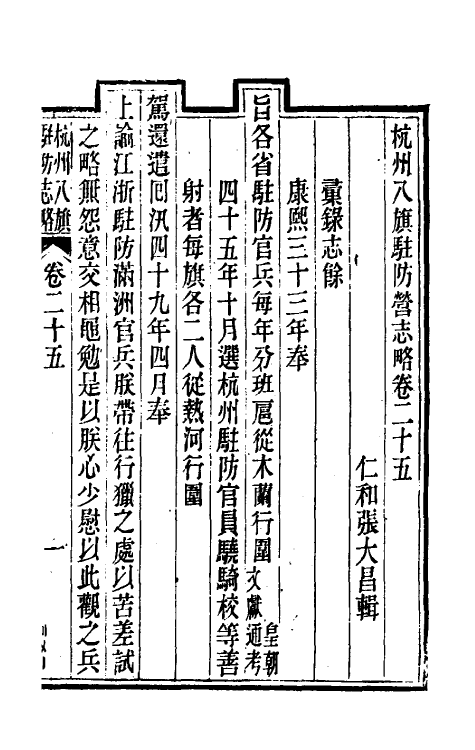 杭州八旗駐防營志略卷二十五
仁和張大昌輯
彙錄志餘
康熙三十三年奉
旨各省駐防官兵每年分班扈從木蘭行圍皇朝文獻通考
四十五年十月選杭州駐防官員驍騎校等善
射者每旗各二人從熱河行圍
駕還遣回汛四十九年四月奉
上諭江浙駐防滿洲官兵朕帶往行獵之處以苦差試
之略無怨意交相黽勉是以朕心少慰以此觀之兵
杭州八旗駐防志略 卷二十五 一